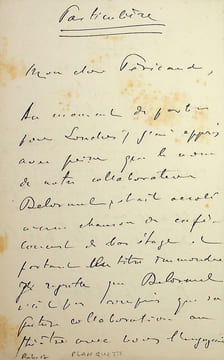 Particulière
Mon cher Péricaud,
Au moment de partir
pour Londres, j'ai appris
avec peine que le nom
de notre collaborateur
Delormel était accolé
une chanson de café-
concert de bas étage et
portant un titre immonde
Je regrette que Delormel
n'ait pas compris que sa
future collaboration au
théâtre avec nous l'engageait
PLANQUETTE